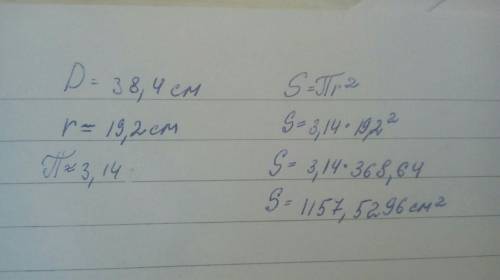 D = 38,4 см
r = 19,2 см
П ≈ 3,14
S = Пr²
S = 3,14 · 19,2²
S = 3,14 · 368,64
S = 1157,5296 см²